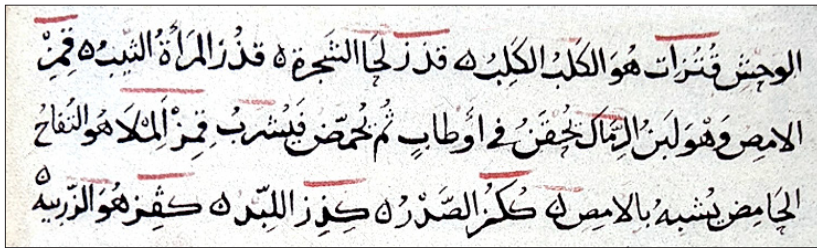 الوحش قُتُزات هُوَ الكَلْبُ الكَلِبُ ه قَدزْ لحَا الشجرة ه قذُز المَرأَةُ الثيِّبُ ه قِمِزْ
الامص وَهْوَ لبن الرِمَاك يُحقَنُ في اَوطابٍ ثم يُحمَّض فَيُشرَبُ قِمِزْ اَلِمْلا هو التفاحُ
الحَامِض يُشبهُ بالامِص ه كُكُزْ الصَّدْرُ ه كِذِز اللبْد ه كِڤِز هُوَ الزّربيه ه